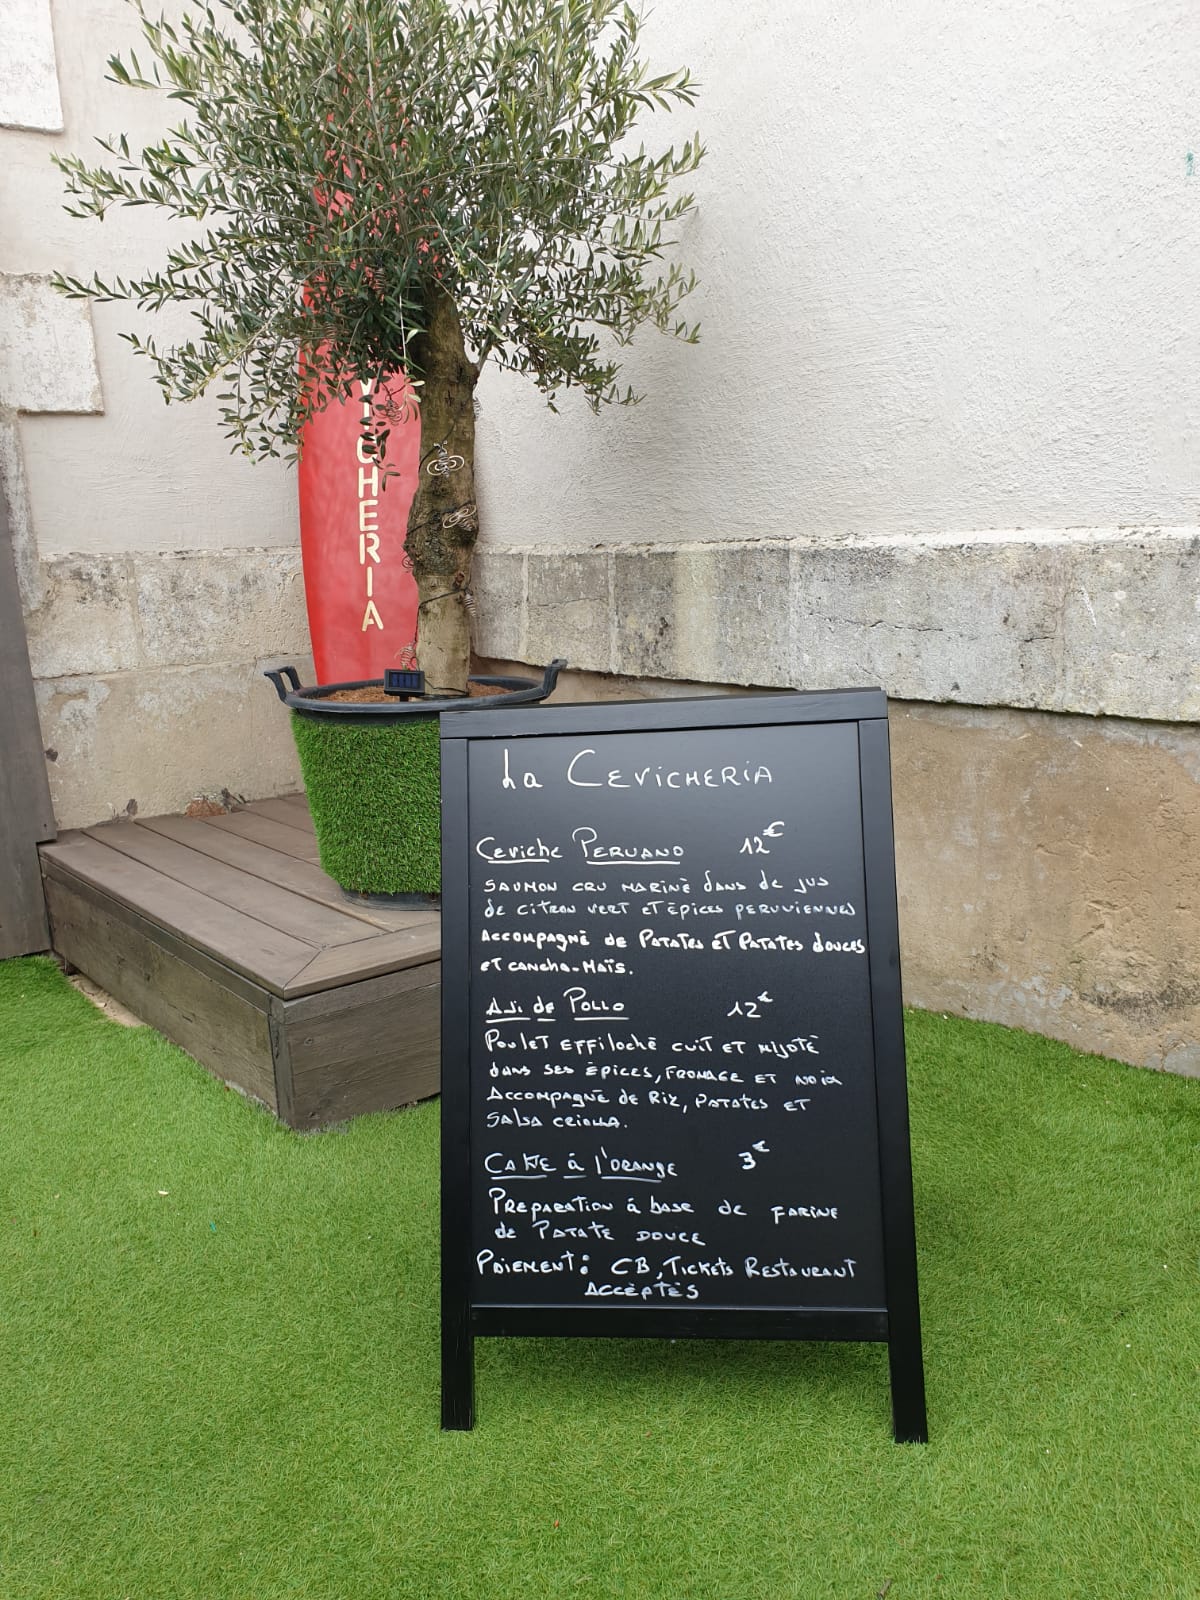 VICHERIA
La CEVICHERIA
Ceviche PERUANO 12€
SAUMON CRU MARINÉ dans de jus
de citron vert et épices peruviennes
Accompagné de Patates et Patates douces
et cancha-maïs.
AJi de Pollo 12€
Poulet effiloché cuit et mijoté
dans ses épices, fromage et noix
Accompagné de Riz, patates et
salsa criolla.
CAKE à l'orange 3€
Preparation à base de farine
de Patate douce
Paiement: CB, Tickets Restaurant
Accéptés